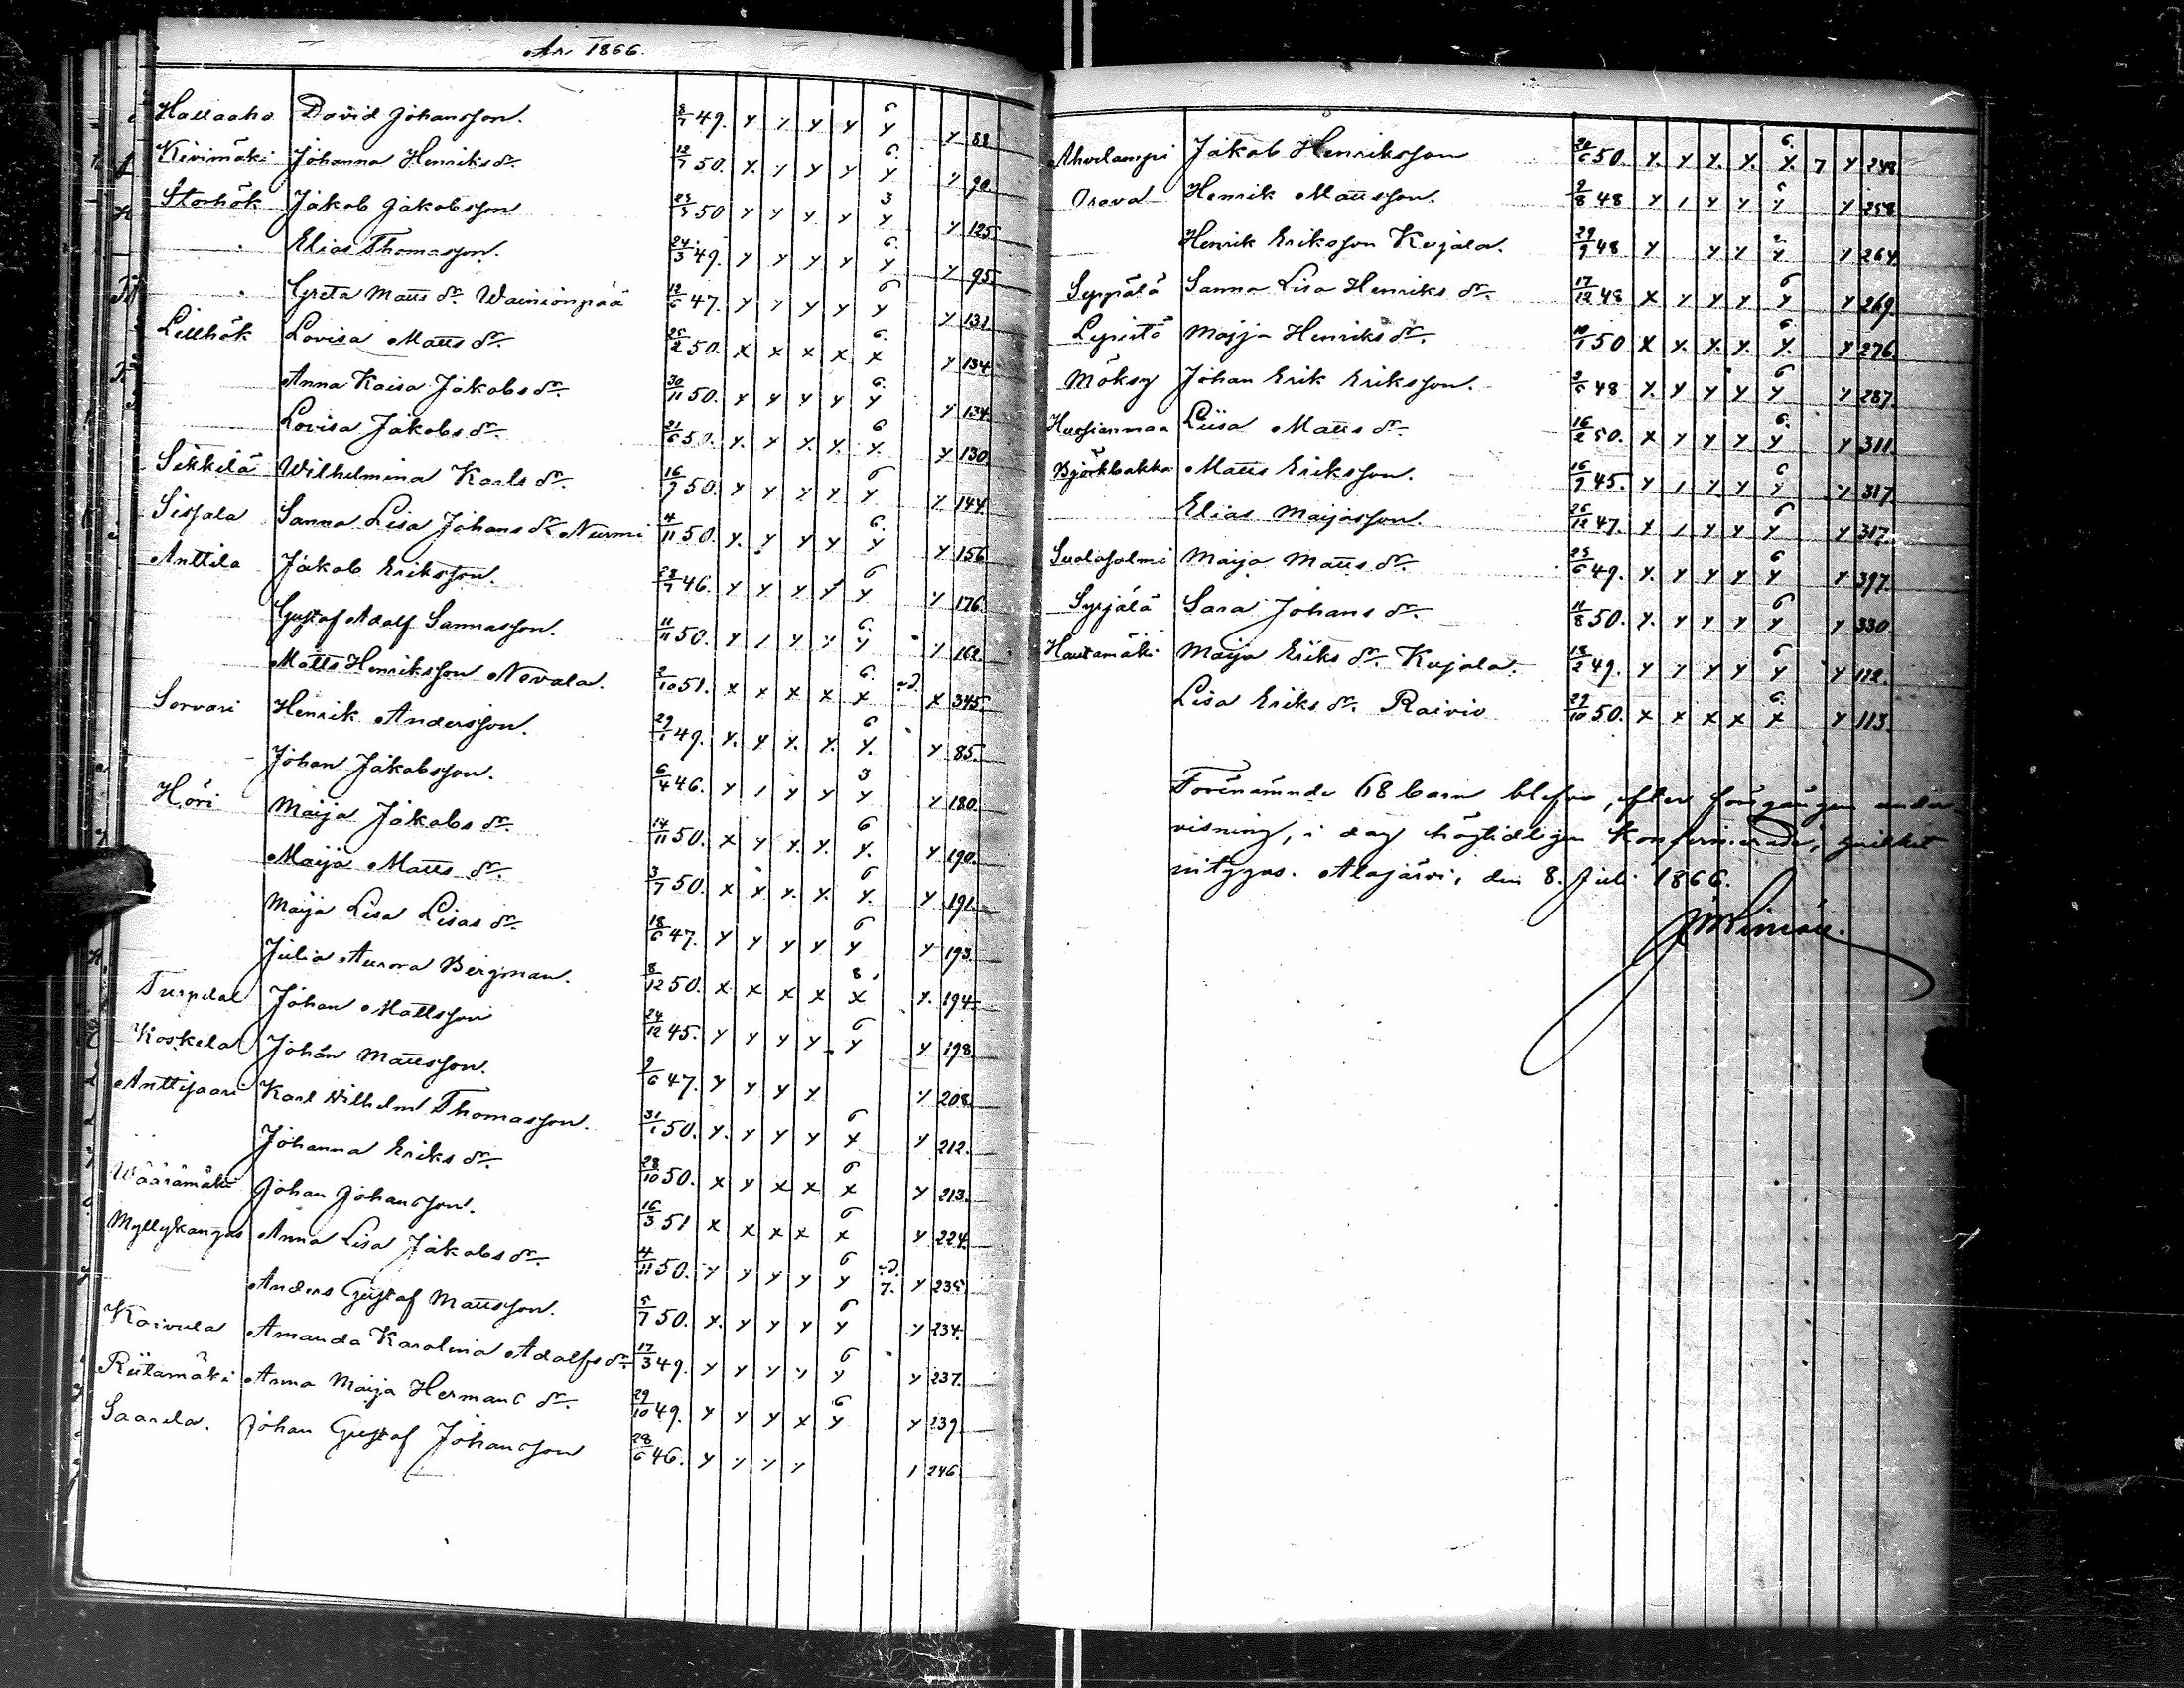 År 1866.
Hallaaho David Johansson. 8/7 49. y y y y 6 y y 88
Kivimäki Johanna Henriksdr. 12/7 50. y. y y y 6. y y 90
Storhök Jakob Jakobsson 23/3 50 y y y y 3 y y 125
Elias Thomasson. 24/3 49. y y y y 6. y y 95
Greta Mattsdr. Wainionpää 12/6 47. y y y y 6 y y 131
Lillhök Lovisa Mattsdr. 25/2 50. x x x x 6. x y 134
Anna Kaisa Jakobsdr. 30/11 50. y y y y 6. y y 134
Lovisa Jakobsdr. 21/6 50. y. y y. y. 6 y. y 130
Sikkilä Wilhelmina Karlsdr. 16/9 50. y y y y. 6 y y 144
Sissala Sanna Lisa Johansdr. Nurmi 4/11 50. y. y y y 6. y y 156
Anttila Jakob Eriksson. 28/7 46. y y y y 6 y y 176
Gustaf Adolf Sannasson. 11/11 50. y 1 y y 6. y y 162
Matts Henriksson Nevala. 2/10 51. x x x x 6. x x 345
Sorvari Henrik Andersson. 29/1 49. y. y y. y. 6 y. y 85.
Johan Jakobsson. 6/4 46. y 1 y y 3 y y 180
Höri Maija Jakobsdr. 14/11 50. x y y. y. 6 y. y 190.
Maija Mattsdr. 3/7 50. x x x. x. 6 y. y 191.
Maija Lisa Lisasdr. 18/6 47. y y y y 6 y y 193
Julia Aurora Bergman. 8/12 50. x x x x 8 x y. 194
Turpela Johan Mattsson 24/12 45. y y y y 6 y y 198
Koskela Johan Mattsson. 9/6 47. y y y y y 208
Anttisaari Karl Wilhelm Thomasson. 31/1 50. y. y y y 6 x y 212.
Johanna Eriksdr. 28/10 50. x y x x 6 x y 213.
Wäärämäki Johan Johansson. 16/3 51 x x x x 6 x y 224
Myllykangas Anna Lisa Jakobsdr. 4/11 50. y y y y 6 y 7. y 235
Anders Gustaf Mattsson. 5/7 50. y. y y y 6 y y 234.
Koivula Amanda Karolina Adolfsdr. 17/3 49. y y y y 6 y y 237.
Riitamäki Anna Maija Hermansdr. 29/10 49. y y y x 6 y y 239
Saarela. Johan Gustaf Johansson 28/6 46. y y y y 1 246
Ahvelampi Jakob Henriksson 26/6 50. y. y y. y. 6. y. 7 y 248
Orava Henrik Mattsson. 9/8 48 y 1 y y 6 y y 258
Henrik Eriksson Kujala. 29/9 48 y y y y y 264
Seppälä Sanna Lisa Henriksdr. 17/12 48 x y y y 6 y y 269
Lepistö Maija Henriksdr. 10/1 50 x y. y. y. 6 y. y 276.
Möksy Johan Erik Eriksson. 3/6 48 y. y y y 6 y y 287.
Liisa Mattsdr. 16/2 50. x y y y 6. y y 311.
Björkbakka Matts Eriksson. 16/9 45. y 1 y y 6 y y 317
Elias Maijasson. 26/12 47. x 1 y y 6 y y 317.
Sualasalmi Maija Mattsdr. 25/6 49. y. y y y 6 y y 397.
Syrjälä Sara Johansdr. 11/8 50. y. y y y 6 y y 330.
Hautamäki Maija Eriksdr. Kujala. 18/2 49. y y y y 6 y y 112.
Lisa Eriksdr. Raivio 29/10 50. x x x x 6. x y 113.
Förenämnde 68 barn blefvo, efter föregången under
visning, i dag högtidligen konfirmerade, hvilket
intygas. Alajärvi, den 8. Juli 1866.